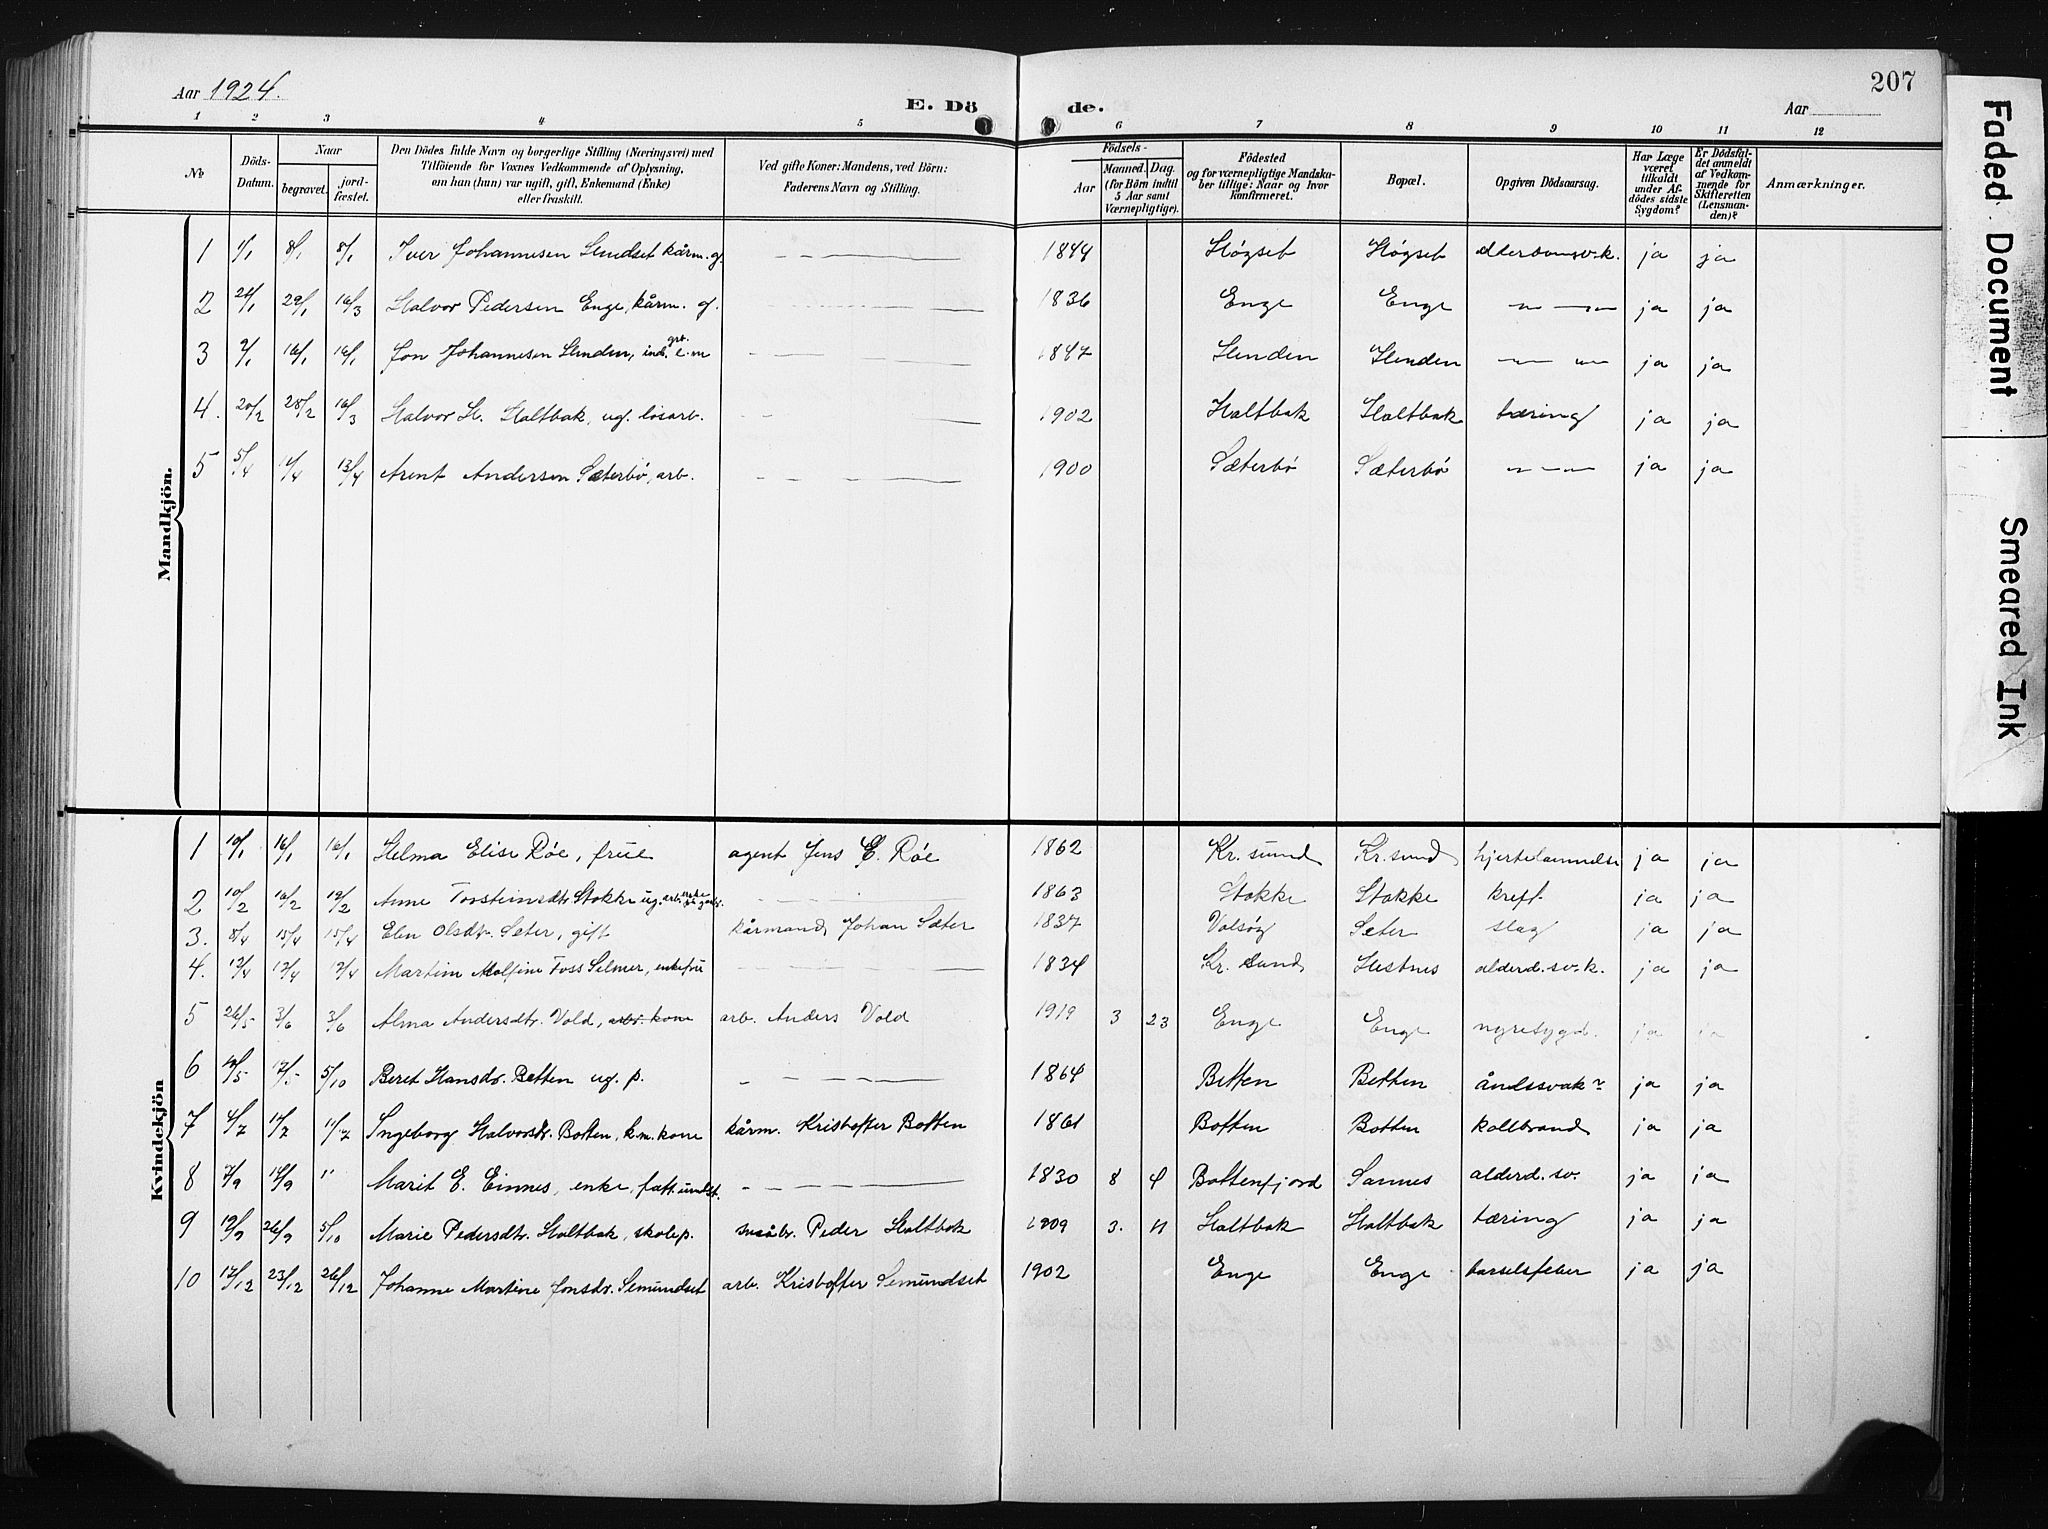 Aar 1924.
E. Dö de.
Aar
207
1 2 3 4 5 6 7 8 9 10 11 12
№
Döds-Datum.
Naar
begravet.
jord-fæstet.
Den Dödes fulde Navn og borgerlige Stilling (Næringsvei) med
Tilföiende for Voxnes Vedkommende af Oplysning,
om han (hun) var ugift, gift, Enkemand (Enke)
eller fraskilt.
Ved gifte Koner: Mandens, ved Börn:
Faderens Navn og Stilling.
Födsels-
Aar
Maaned. Dag.
(for Börn indtil
5 Aar samt
Værnepligtige).
Födested
og for værnepligtige Mandska-
ber tillige: Naar og hvor
konfirmeret.
Bopæl.
Opgiven Dödsaarsag.
Har Læge
været
tilkaldt
under Af-
dödes sidste
Sygdom?
Er Dödsfal-
det anmeldt
af Vedkom-
mende for
Skifteretten
(Lensman-
den)?
Anmærkninger.
Mandkjön.
1 1/1 8/1 8/1 Iver Johannesen kårm. g. 1844 Høgset Høgset ja ja
2 21/1 29/1 16/3 Halvor Pedersen Enge, kårm. g. 1836 Enge Enge ja ja
3 9/1 16/1 16/1 Jon Johannesen Henden, e.m 1847 Henden Henden ja ja
4. 20/2 28/2 16/3 Halvor H. Holtbak, ug. løsarb. 1902 Holtbak Holtbak tæring ja ja
5 5/4 12/4 13/4 Arent Andersen Sæterbø, arb. 1900 Sæterbø Sæterbø ja ja
Kvindekjön
1 10/1 16/1 16/1 Helma Elise Røe, frue agent Jens E. Røe 1862 Kr.sund Kr.sund hjertelammelse ja ja
2 10/2 16/2 19/2 Anne Torsteinsdtr. Stokke ug. 1863 Stokke Stokke kreft ja ja
3. 8/4 15/4 15/4 Elen Olsdtr. Sæter, gift kårmand Johan Sæter 1837 Valsøg Seter slag ja ja
4. 13/4 Martine Selmer, enkefrue 1834 Kr. sund Hestnes alderd.sv.k. ja ja
5 26/5 3/6 3/6 Alma Andersdtr. Vold, arbr. kone arb. Anders Vold 1919 3 23 Enge Enge nyresygd. ja ja
6 12/5 17/5 5/10 Beret Hansdr. Betten ug. p. 1864 Betten Betten åndssvak ja ja
7 4/7 11/7 11/7 Ingeborg Halvorsdr. Botten, k.m. kone kårm. Kristoffer Botten 1861 Botten Botten kollbrand ja ja
8 7/9 14/9 " Marit E. Einnes, enke, fatt.undst. 1830 8 4 Bottenfjord Sannes alderd.sv. ja ja
9 19/9 26/9 5/10 Marie Pedersdtr. Holtbak, skolep. småbr. Peder Holtbak 1909 3. 11 Holtbak Holtbak tæring ja ja
10 17/12 23/12 26/12 Johanne Martine Jonsdr. Semundset arb. Kristoffer Semundset 1902 Enge Enge barselsfeber ja ja
Faded Document
Smeared Ink